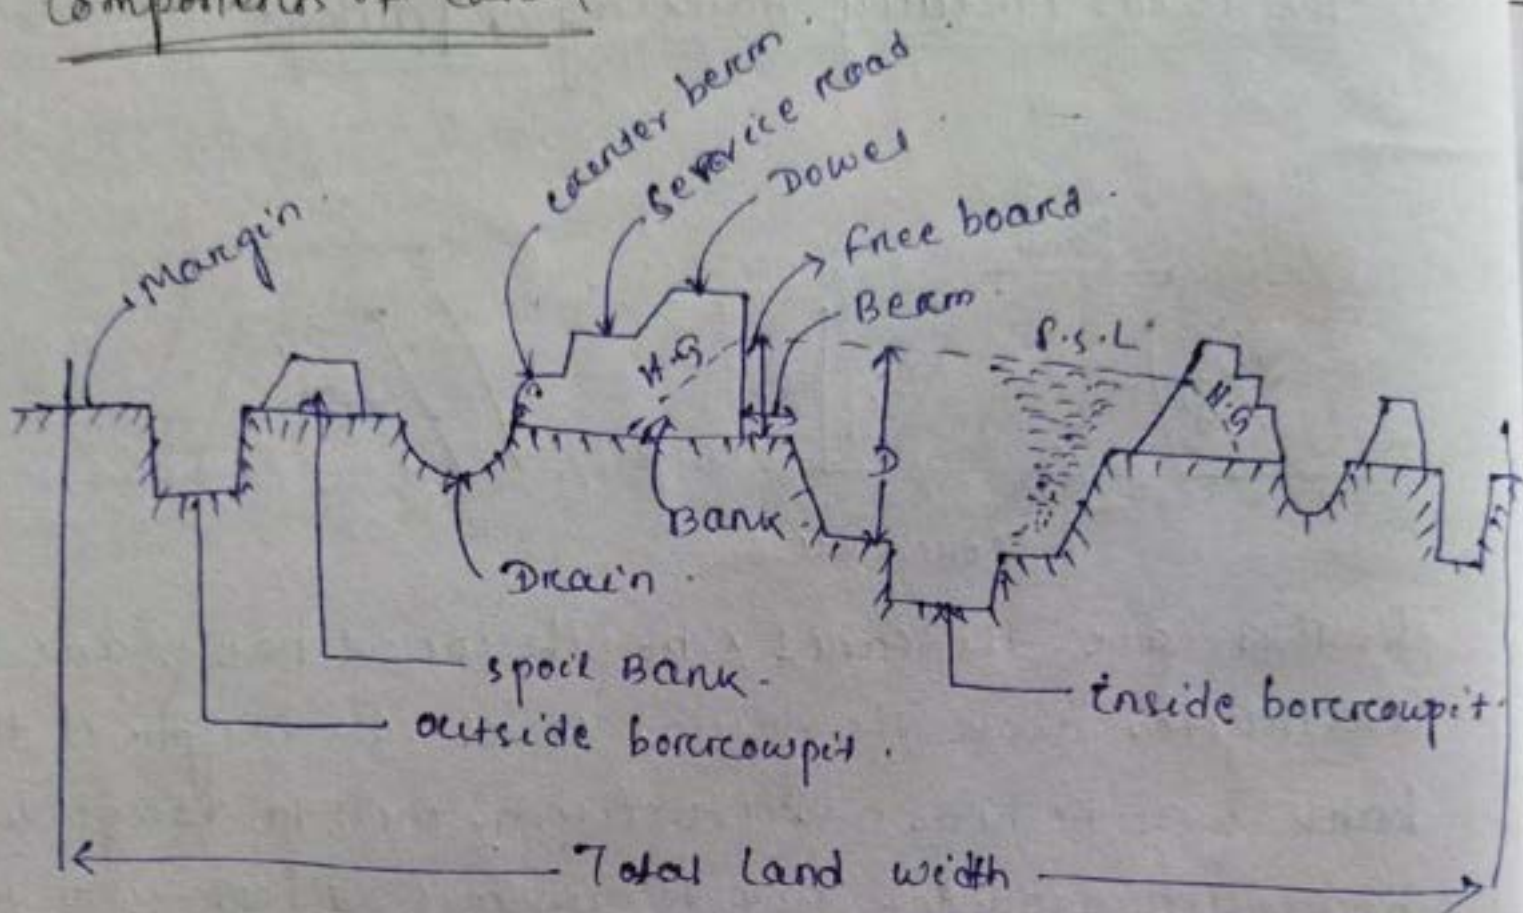 Components of
counter berm.
Service road.
Dowel.
Free board.
Berm.
Margin.
F.S.L.
H.G
H.G
D
Bank.
Drain.
spoil Bank.
inside borrowpit.
outside borrowpit.
Total Land width